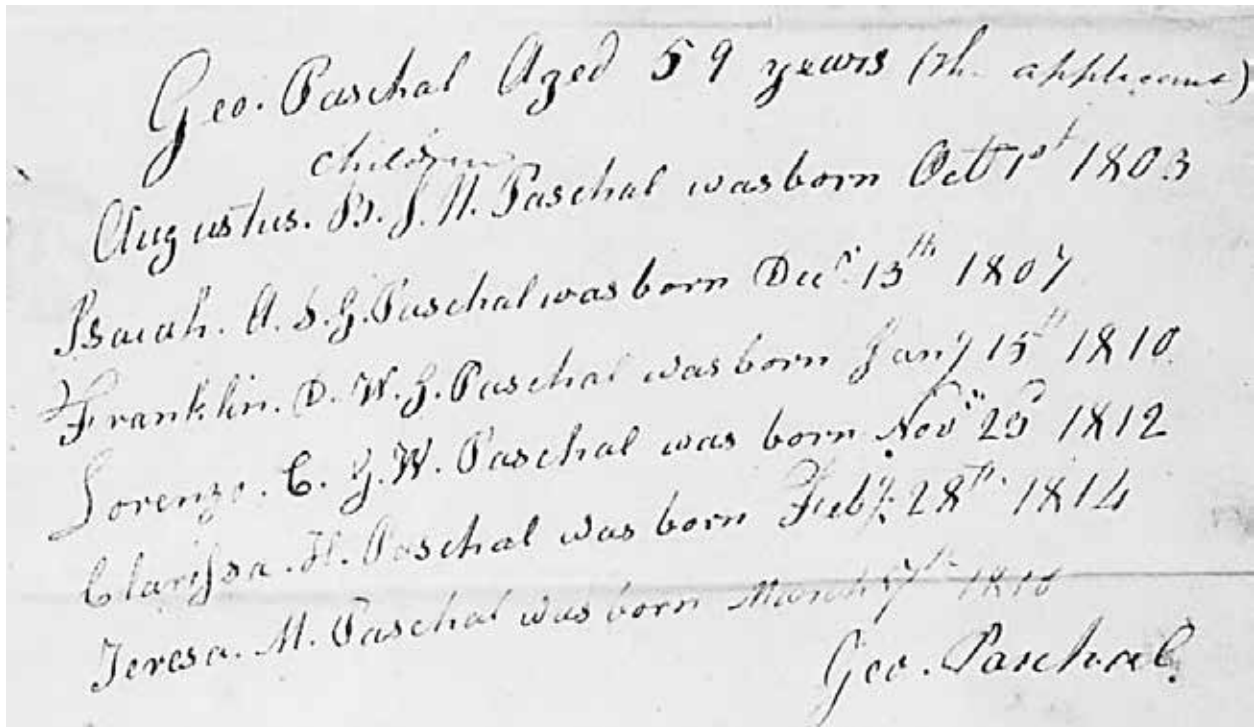 Geo. Paschal Aged 59 years (the applicant)
children
Augustus. B. J. H. Paschal was born Octr 1st 1803
Isaiah. A. S. G. Paschal was born Decr. 15th 1807
Franklin. D. W. G. Paschal was born Jany 15th 1810
Lorenzo. C. G. W. Paschal was born Novr 25th 1812
Clarissa. H. Paschal was born Feby. 28th. 1814
Teresa. M. Paschal was born March 7th
Geo. Paschal.